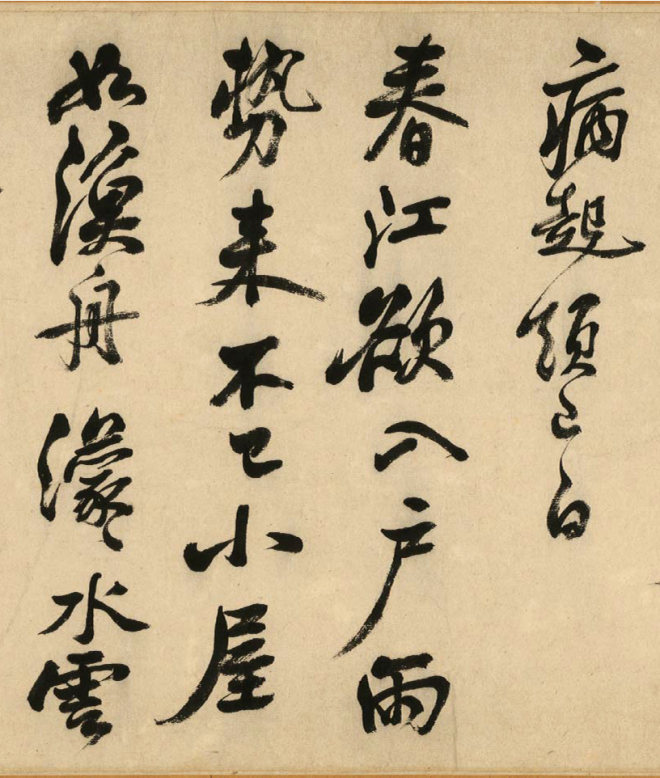 病起頭已白
春江欲入户雨
勢来不已小屋
如漁舟濛〻水雲